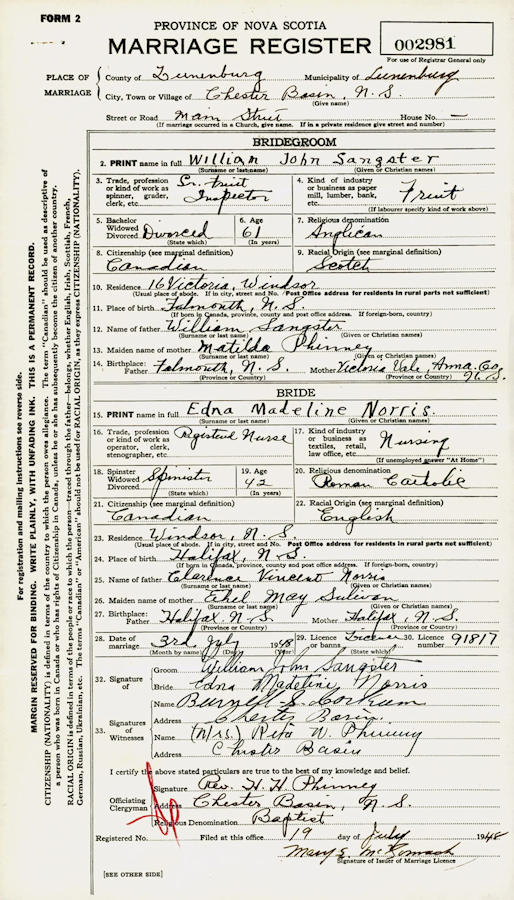 FORM 2
PROVINCE OF NOVA SCOTIA
MARRIAGE REGISTER
002981
For use of Registrar General only
PLACE OF MARRIAGE
County of Lunenburg Municipality of Lunenburg
City, Town or Village of Chester Basin, N.S.
(Give name)
Street or Road Main Street House No. —
(If marriage occurred in a Church, give name. If in a private residence give street and number)
BRIDEGROOM
2. PRINT name in full William John Sangster
(Surname or last name) (Given or Christian names)
3. Trade, profession or kind of work as spinner, grader, clerk, etc. Sr. Fruit Inspector
4. Kind of industry or business as paper mill, lumber, bank, etc. Fruit
(If labourer specify kind of work above)
5. Bachelor Widowed Divorced Divorced
(State which)
6. Age 61
(In years)
7. Religious denomination
Anglican
8. Citizenship (see marginal definition)
Canadian
9. Racial Origin (see marginal definition)
Scotch
10. Residence 16 Victoria, Windsor
(Usual place of abode. If in city, street and No. Post Office address for residents in rural parts not sufficient)
11. Place of birth Falmouth, N.S.
(If born in Canada, province, county and post office address. If foreign-born, country)
12. Name of father William Sangster
(Surname or last name) (Given or Christian names)
13. Maiden name of mother Matilda Phinney
(Surname or last name) (Given or Christian names)
14. Birthplace: Father Falmouth, N.S. Mother Victoria Vale, Anna. Co. N.S.
(Province or Country) (Province or Country)
BRIDE
15. PRINT name in full Edna Madeline Norris.
(Surname or last name) (Given or Christian names)
16. Trade, profession or kind of work as operator, clerk, stenographer, etc. Registered Nurse
17. Kind of industry or business as textiles, retail, law office, etc. Nursing
(If unemployed answer "At Home")
18. Spinster Widowed Divorced Spinster
(State which)
19. Age 42
(In years)
20. Religious denomination
Roman Catholic
21. Citizenship (see marginal definition)
Canadian
22. Racial Origin (see marginal definition)
English
23. Residence Windsor, N.S.
(Usual place of abode. If in city, street and No. Post Office address for residents in rural parts not sufficient)
24. Place of birth Halifax, N.S.
(If born in Canada, province, county and post office address. If foreign-born, country)
25. Name of father Clarence Vincent Norris
(Surname or last name) (Given or Christian names)
26. Maiden name of mother Ethel May Sulivan
(Surname or last name) (Given or Christian names)
27. Birthplace: Father Halifax, N.S. Mother Halifax, N.S.
(Province or Country) (Province or Country)
28. Date of marriage 3rd July 1948
(Month by name) (Day)
29. Licence or banns License
(State which)
30. Licence number 91817
32. Signature of
Groom William John Sangster
Bride Edna Madeline Norris
33. Signatures of Witnesses
Name Burnell S.
Address Chester Basin.
Name (Mrs.) Rita W. Phinney
Address Chester Basin
I certify the above stated particulars are to the best of my knowledge and belief.
Officiating Clergyman
Signature Rev. H. H. Phinney
Address Chester Basin, N.S.
Religious Denomination Baptist
Registered No. Filed at this office 19 day of July 1948
Mary E.
Signature of Issuer of Marriage Licence
[SEE OTHER SIDE]
For registration and mailing instructions see reverse side.
MARGIN RESERVED FOR BINDING. WRITE PLAINLY, WITH UNFADING INK. THIS IS A PERMANENT RECORD.
CITIZENSHIP (NATIONALITY) is defined in terms of the country to which the person owes allegiance. The term "Canadian" should be used as descriptive of
a person who was born in Canada or who has rights of Citizenship in Canada, unless he or she has subsequently become the citizen of another country.
RACIAL ORIGIN, is defined in terms of the people or race to which the person—traced through the father—belongs, whether English, Irish, Scottish, French,
German, Russian, Ukrainian, etc. The terms "Canadian" or "American" should not be used for RACIAL ORIGIN, as they express CITIZENSHIP (NATIONALITY).